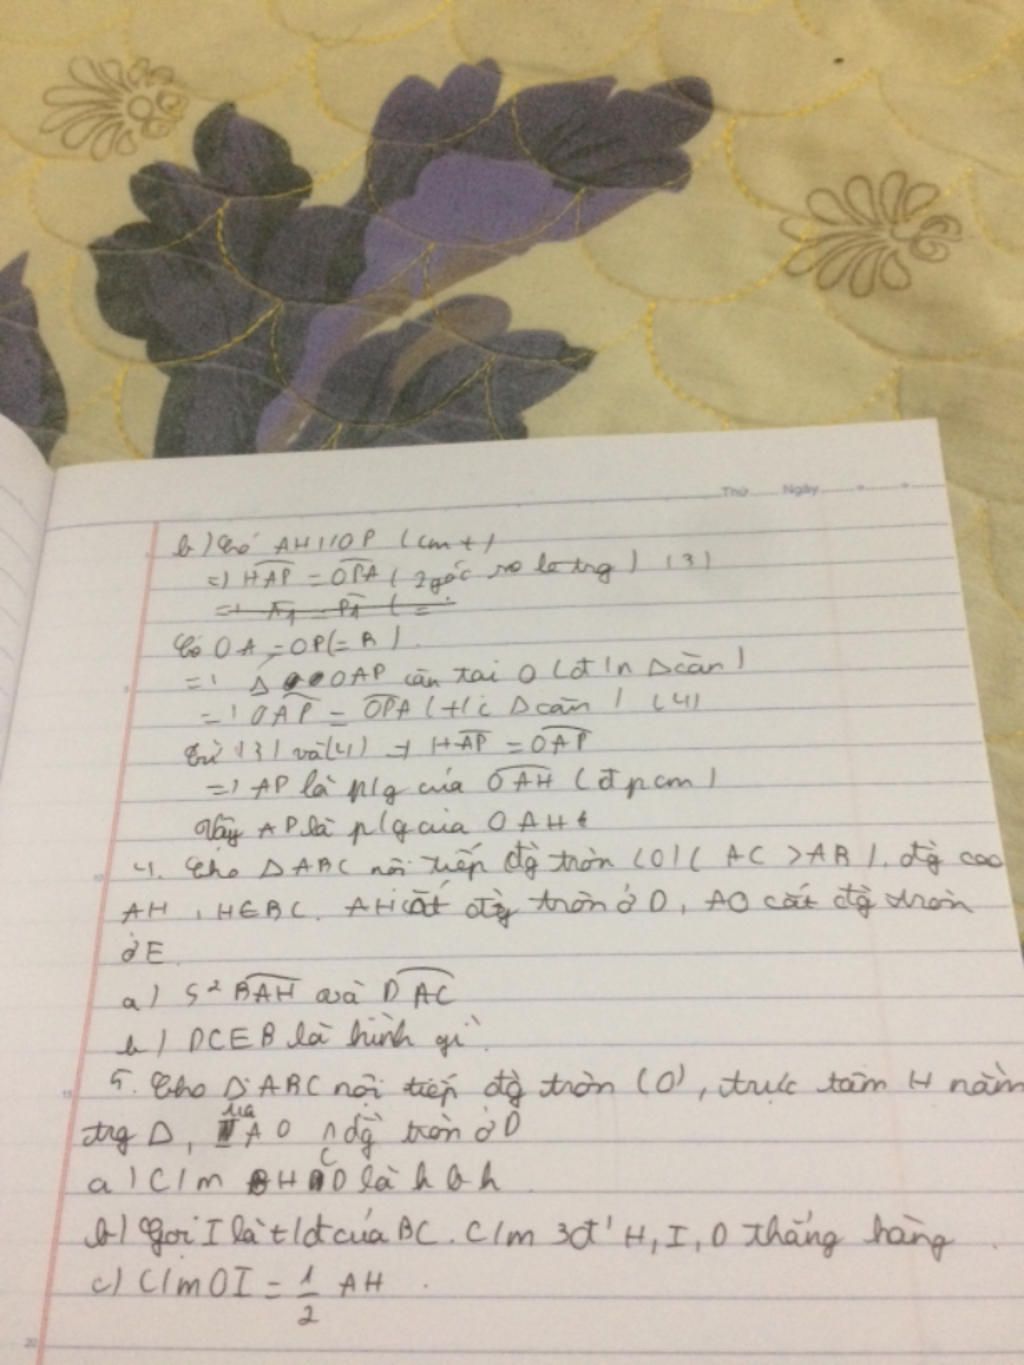 Thứ Ngày
b) Có AH // OP (cmt)
=) HAP = OPA ( 2 góc so le trg ) (3)
Có OA = OP (= R).
=) Δ OAP cân tại O (đ/n Δ cân)
=) OAP = OPA (t/c Δ cân) (4)
Từ (3) và (4) → HAP = OAP
=) AP là p/g của OAH (đpcm)
Vậy AP là p/g của OAH
4. Cho ΔABC nội tiếp đg tròn (O) ( AC > AB ). đg cao
AH, H∈BC. AH cắt đg tròn ở D, AO cắt đg tròn
ở E
a) S² BAH và DAC
b) DCEB là hình gì.
5. Cho ΔABC nội tiếp đg tròn (O), trực tâm H nằm
trg Δ, tia AO ∩ đg tròn ở D
a) C/m BHCD là hbh
b) Gọi I là t/đ của BC. C/m 3đ' H, I, D thẳng hàng.
c) C/m OI = 1/2 AH.